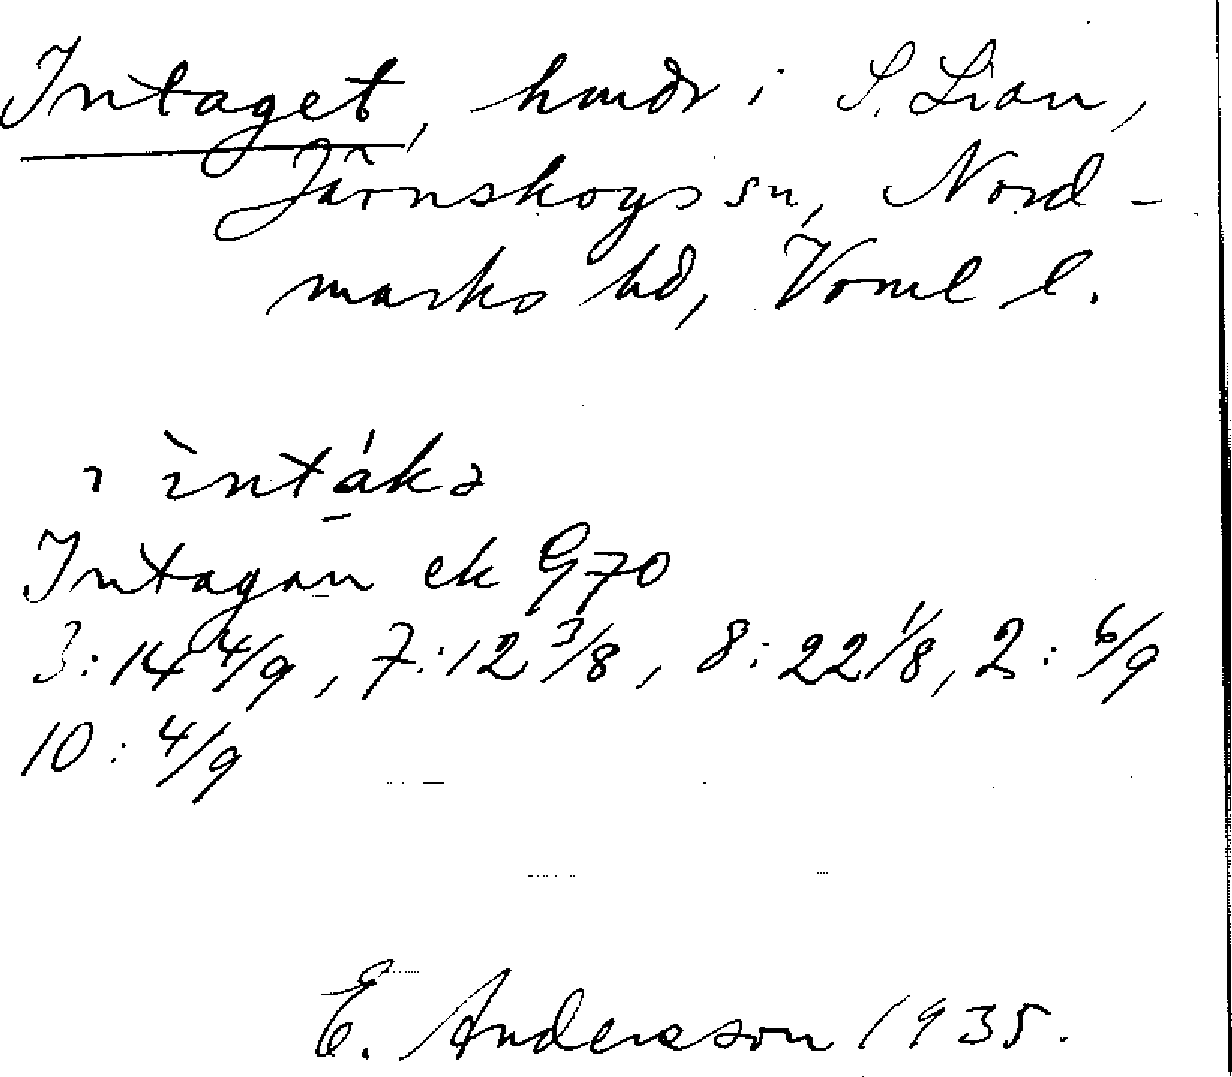 Intaget, hmdr i S. Lian,
Järnskogs sn, Nord-
marks hd, Värml l.
ı ìntáka
Intagan ek G70
3:14 4/9, 7:12 3/8, 8:22 1/8, 2: 6/9
10: 4/9
E. Andersson 1935.